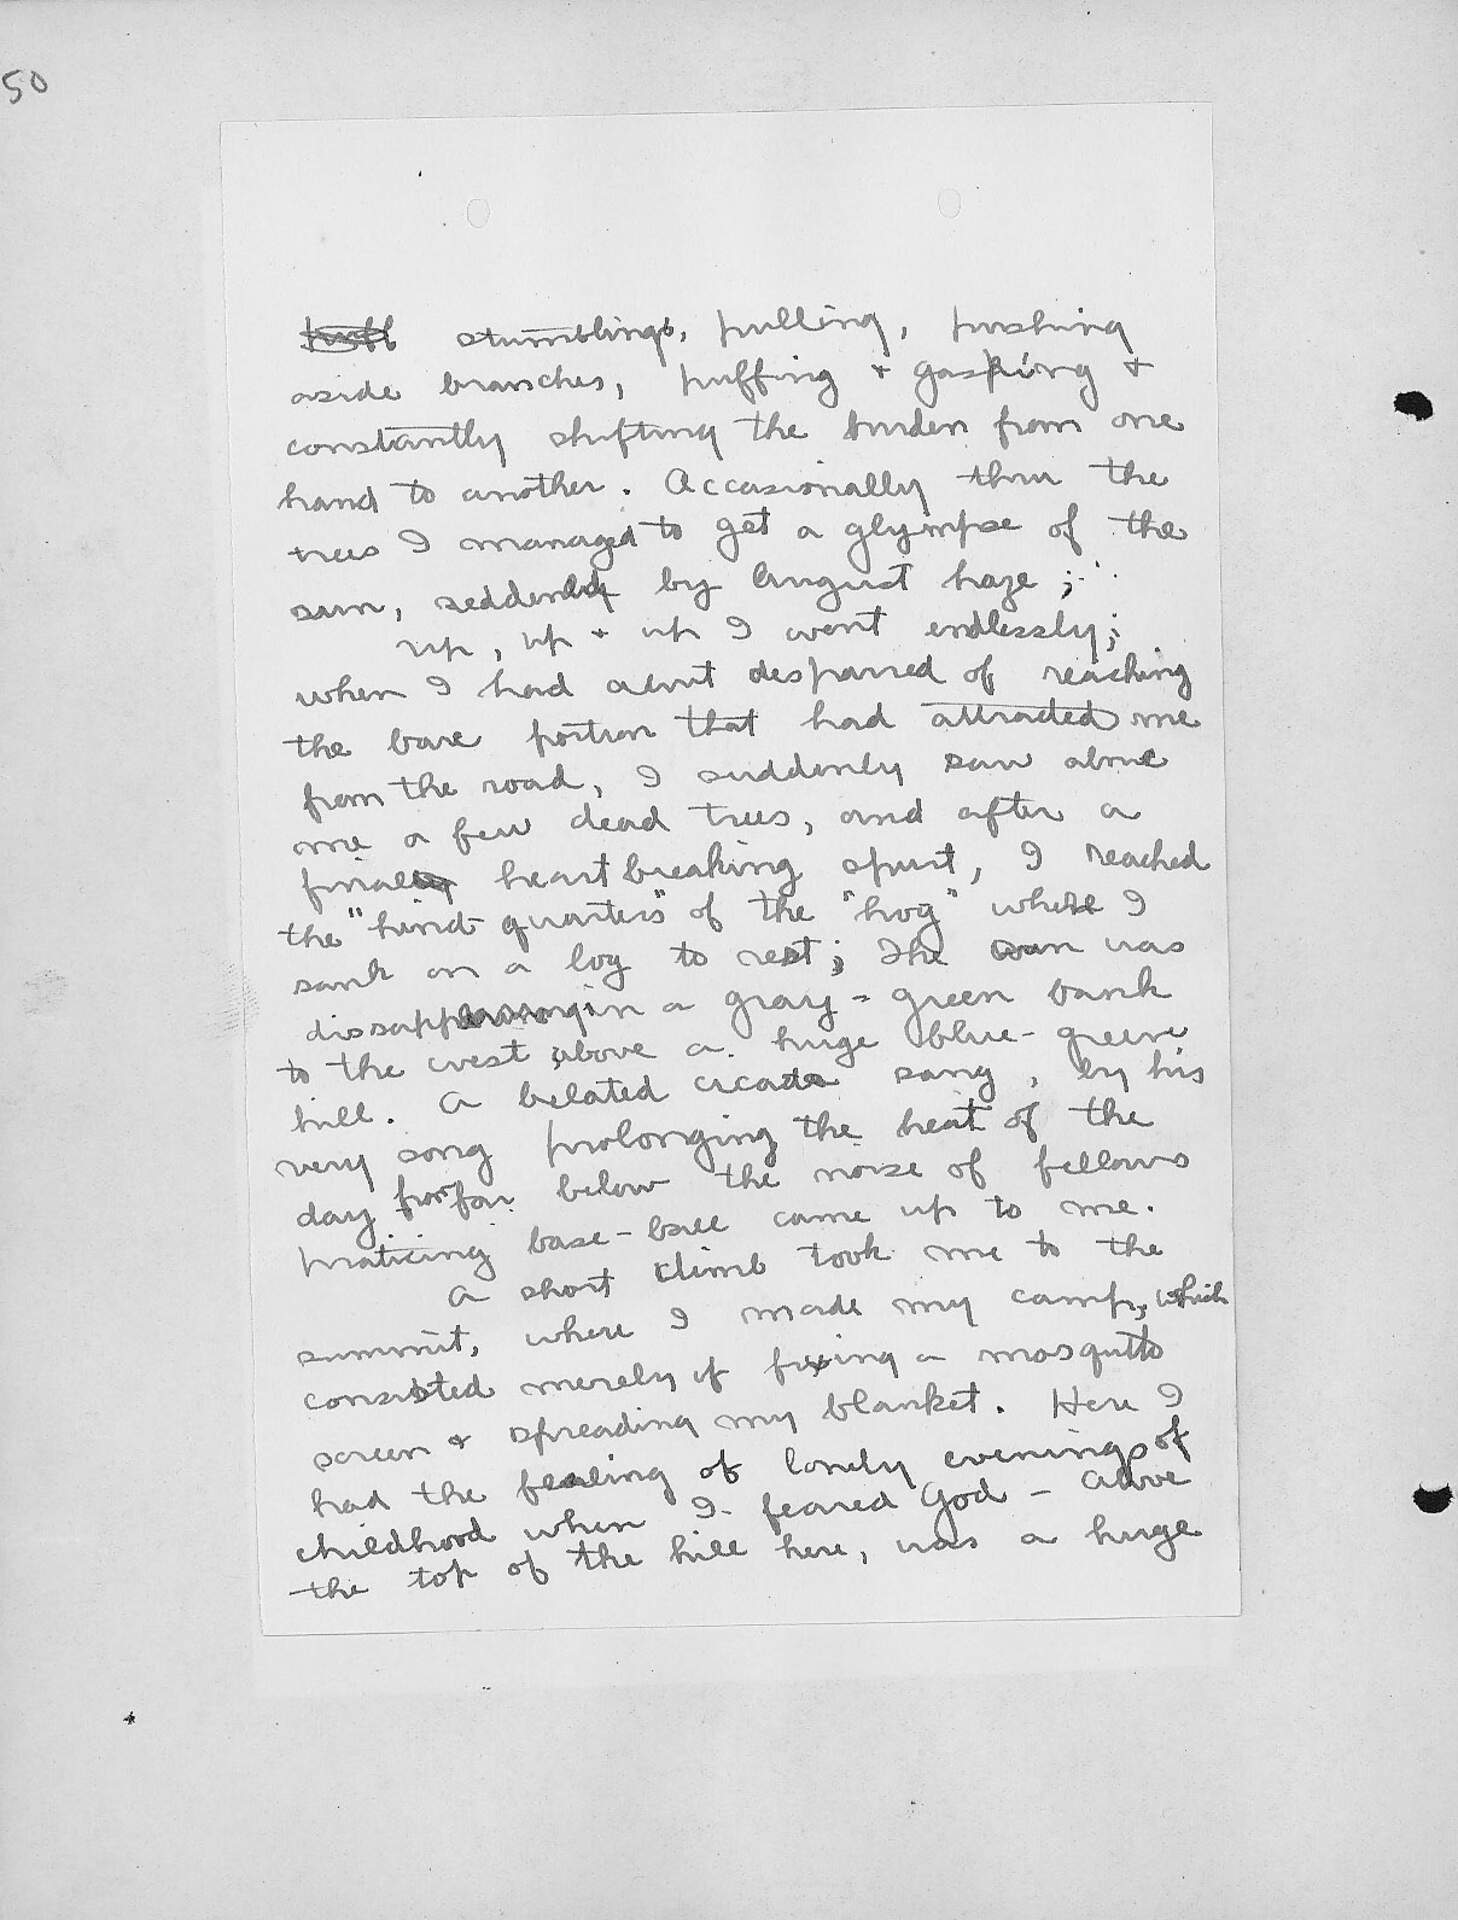 50
puff stumbling, pulling, pushing
aside branches, puffing + gasping +
constantly shifting the burden from one
hand to another. Occasionally thru the
trees I managed to get a glympse of the
sun, reddened by August haze;
up, up + up I went endlessly;
when I had almt despaired of reaching
the bare portion that had attracted me
from the road, I suddenly saw above
me a few dead trees, and after a
final heart breaking spurt, I reached
the "hind-quarters" of the "hog" where I
sank on a log to rest; The sun was
dissappearing in a gray-green bank
to the west, above a huge blue-green
hill. A belated cicada sang, by his
very song prolonging the heat of the
day far below the noise of fellows
praticing base-ball came up to me.
A short climb took me to the
summit, where I made my camp, which
consisted merely of fixing a mosquito
screen + spreading my blanket. Here I
had the feeling of lonely evenings of
childhood when I feared God - Above
the top of the hill here, was a huge